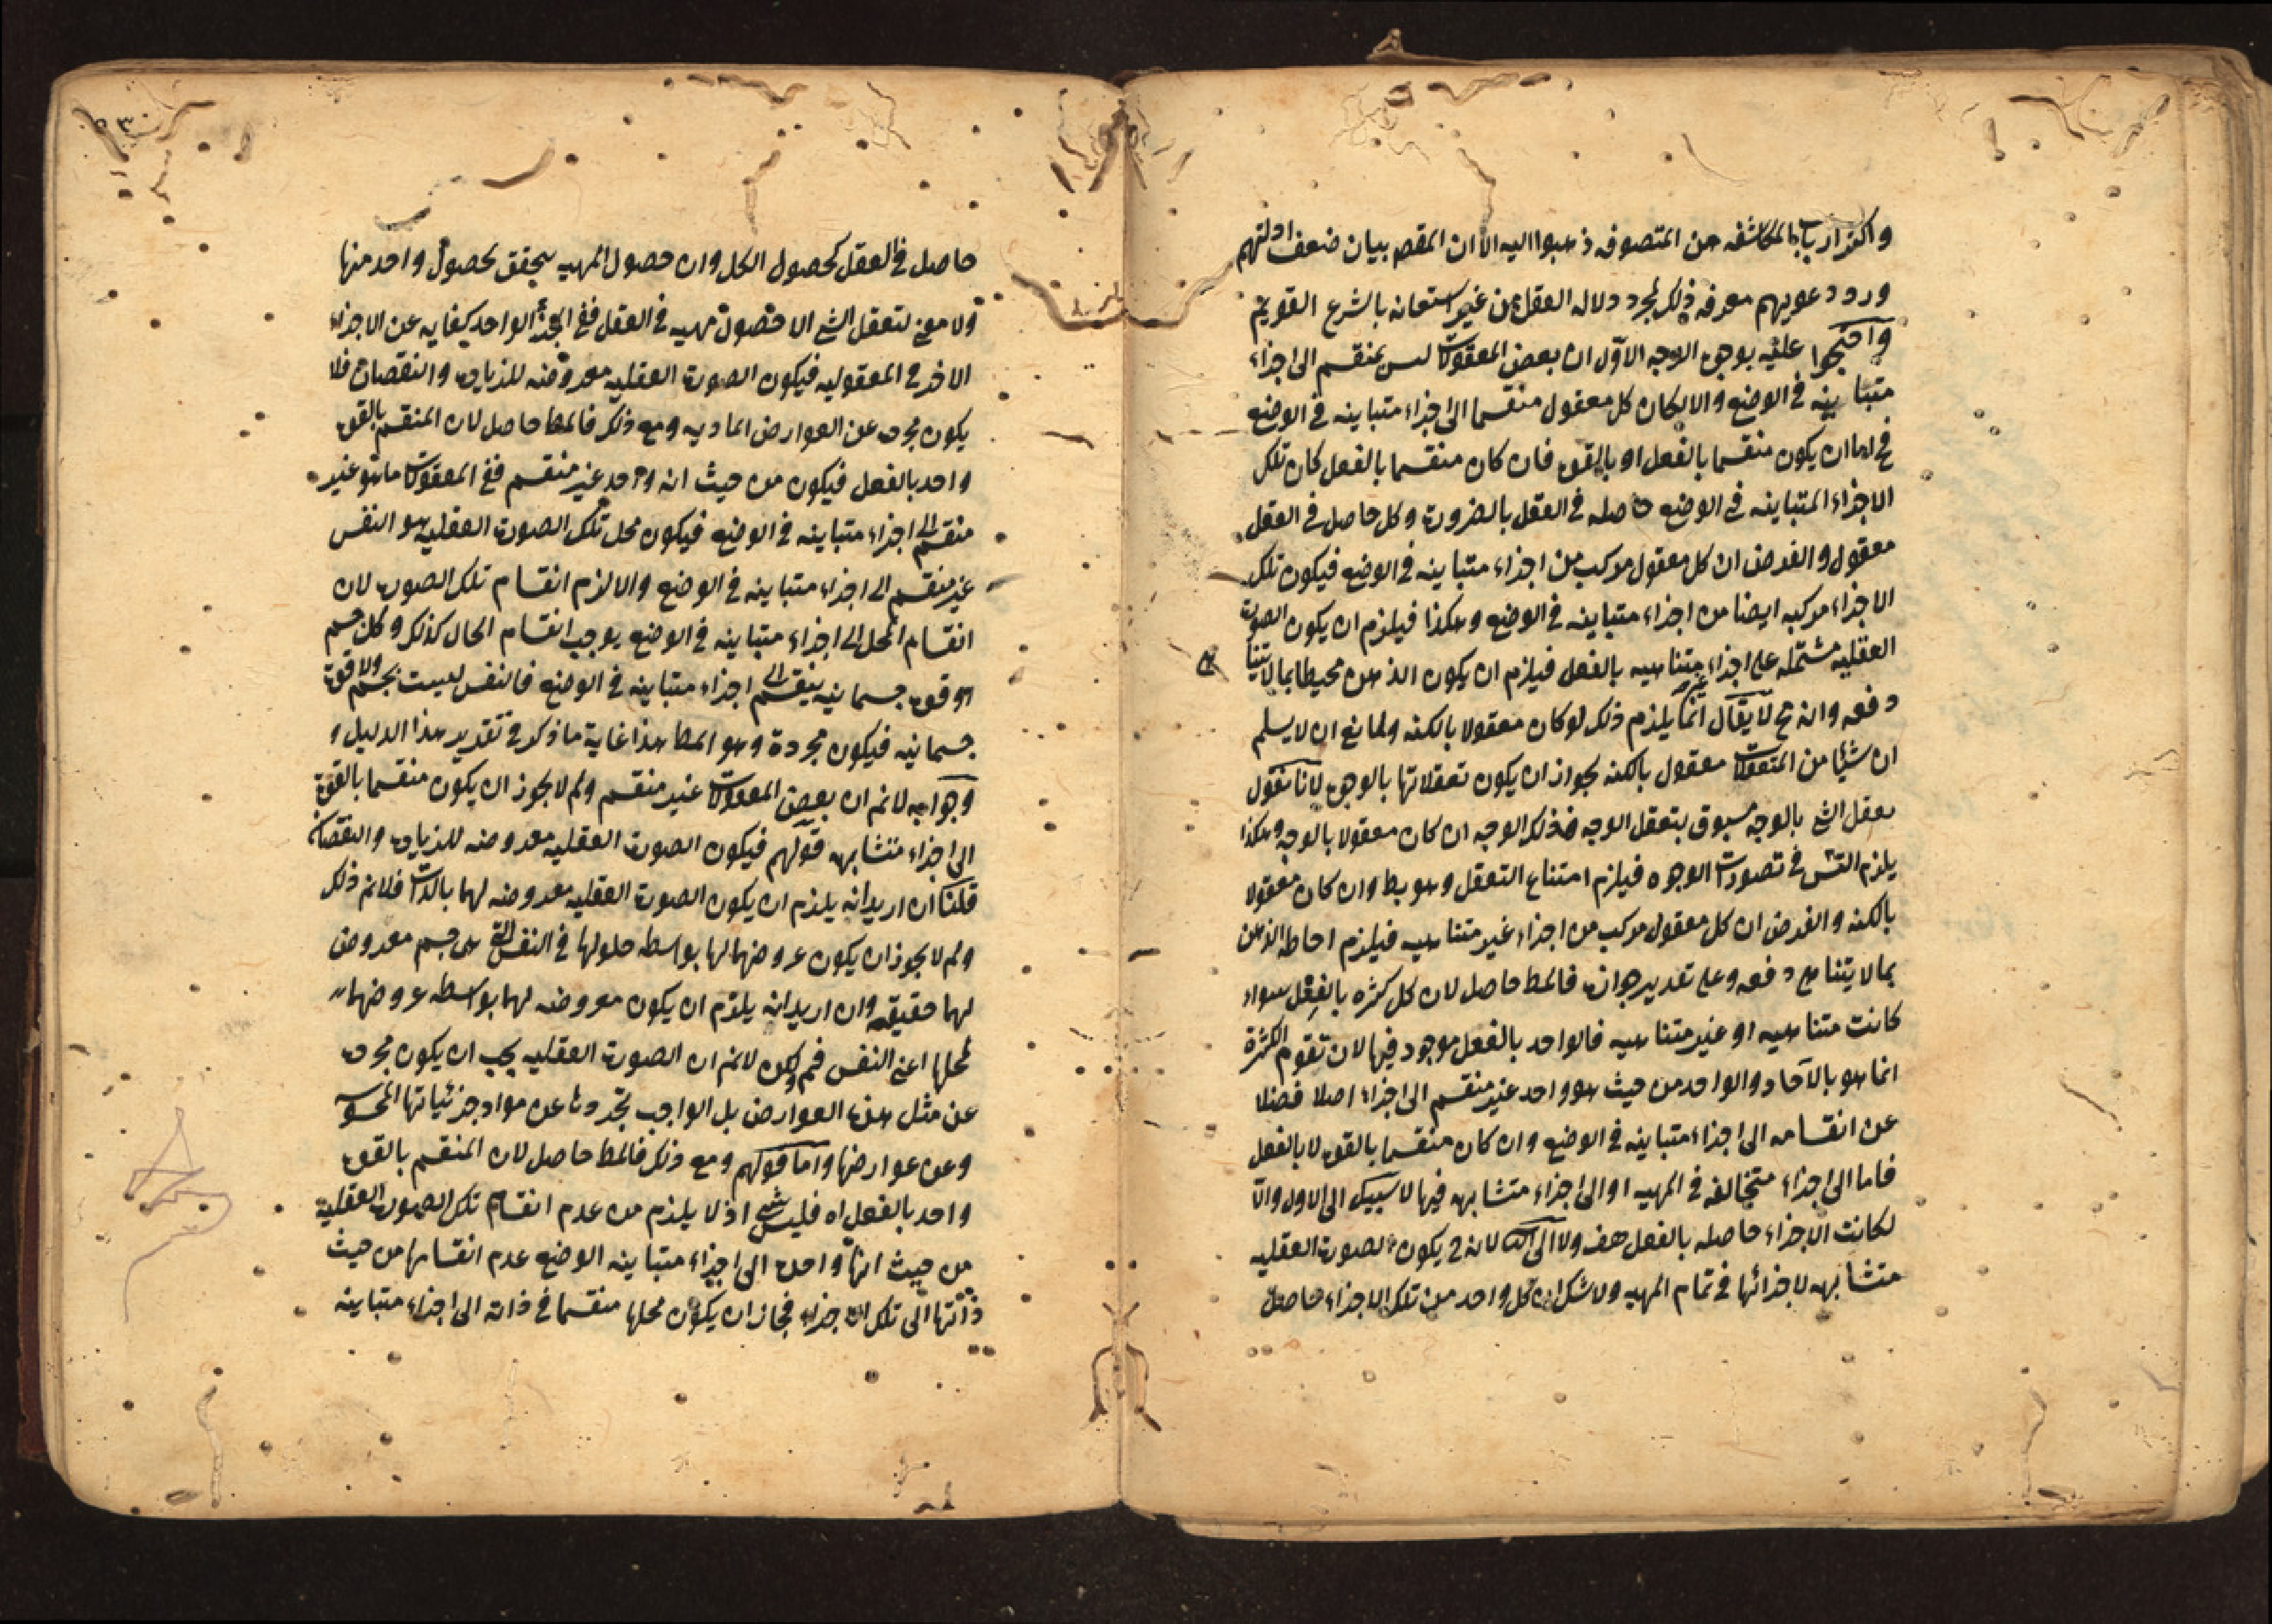 واكثر ارباب المكاشفه من المتصوفه ذهبوا اليه الا ان المقصد بيان ضعف ادلتهم
ورد دعويهم معرفه ذلك بمجرد دلاله العقل من غير استعانه بالشرع القويم
واحتجوا عليه بوجوه الوجه الاول ان بعض المعقولات ليس بمنقسم الى اجزاء
متباينه في الوضع والا لكان كل معقول منقسما الى اجزاء متباينه في الوضع
فح اما ان يكون منقسما بالفعل او بالقوه فان كان منقسما بالفعل كان تلك
الاجزاء المتباينه في الوضع حاصله في العقل بالضروره وكل حاصل في العقل
معقول والفرض ان كل معقول مركب من اجزاء متباينه في الوضع فيكون تلك
الاجزاء مركبه ايضا من اجزاء متباينه في الوضع وهكذا فيلزم ان يكون الصوره
العقليه مشتمله على اجزاء غير متناهيه بالفعل فيلزم ان يكون الذهن محيطا بما لا يتناهى
دفعه وانه مح لا يقال انما يلزم ذلك لو كان معقولا بالكنه ولمانع ان لا يسلم
ان شيئا من المتعقلات معقول بالكنه لجواز ان يكون تعقلاتها بالوجوه لانا نقول
تعقل الشي بالوجه مسبوق بتعقل الوجه فذلك الوجه ان كان معقولا بالوجه وهكذا
يلزم التس في تصورات الوجوه فيلزم امتناع التعقل وهو بط وان كان معقولا
بالكنه والفرض ان كل معقول مركب من اجزاء غير متناهيه فيلزم احاطه الذهن
بما لا يتناهى دفعه وعلى تقدير جوازه فالمط حاصل لان كل كثره بالفعل سواء
كانت متناهيه او غير متناهيه فالواحد بالفعل موجود فيها لان تقوم الكثرة
انما هو بالآحاد والواحد من حيث هو واحد غير منقسم الى اجزاء اصلا فضلا
عن انقسامه الى اجزاء متباينه في الوضع وان كان منقسما بالقوه لا بالفعل
فاما الى اجزاء متخالفه في المهيه او الى اجزاء متشابهه فيها لا سبيل الى الاول والا
لكانت الاجزاء حاصله بالفعل هف ولا الى الثا لانه ح يكون الصوره العقليه
متشابهه لاجزائها في تمام المهيه ولا شك ان كل واحد من تلك الاجزاء حاصل
حاصل في العقل كحصول الكل وان حصول المهيه يتحقق بحصول واحد منها
ولا معنى لتعقل الشي الا حصول مهيه في العقل ففي الجزء الواحد كفايه عن الاجزاء
الاخر في المعقوليه فيكون الصوره العقليه معروضه للزياده والنقصان فلا
يكون مجرده عن العوارض الماديه ومع ذلك فالمط حاصل لان المنقسم بالقوه
واحد بالفعل فيكون من حيث انه واحد غير منقسم ففي المعقولات ما هو غير
منقسم الى اجزاء متباينه في الوضع فيكون محل تلك الصوره العقليه هو النفس
غير منقسم الى اجزاء متباينه في الوضع والا لزم انقسام تلك الصوره لان
انقسام المحل الى اجزاء متباينه في الوضع يوجب انقسام الحال كذلك وكل جسم
او قوه جسمانيه ينقسم الى اجزاء متباينه في الوضع فالنفس ليست بجسم ولا قوه
جسمانيه فيكون مجردة وهو المط هذا غاية ما ذكر في تقدير هذا الدليل و
جوابه لانم ان بعض المعقولات غير منقسم ولم لا يجوز ان يكون منقسما بالقوه
الى اجزاء متشابهه قولهم فيكون الصوره العقليه معروضه للزياده والنقصان
قلنا ان اريد انه يلزم ان يكون الصوره العقليه معروضه لهما بالذات فلانم ذلك
ولم لا يجوز ان يكون عروضهما لها بواسطه حلولها في النفس التي هى جسم معروض
لهما حقيقه وان اريد انه يلزم ان يكون معروضه لهما بواسطه عروضهما
لمحلها اعني النفس فم ولكن لانم ان الصوره العقليه يجب ان يكون مجرده
عن مثل هذه العوارض بل الواجب تجردها عن مواد جزئياتها المحسوسه
وعن عوارضها واما قولهم ومع ذلك فالمط حاصل لان المنقسم بالقوه
واحد بالفعل اه فليس بشي اذ لا يلزم من عدم انقسام تلك الصوره العقلية
من حيث انها واحده الى اجزاء متباينه الوضع عدم انقسامها من حيث
ذاتها الى تلك الاجزاء فجاز ان يكون محلها منقسما في ذاته الى اجزاء متباينه